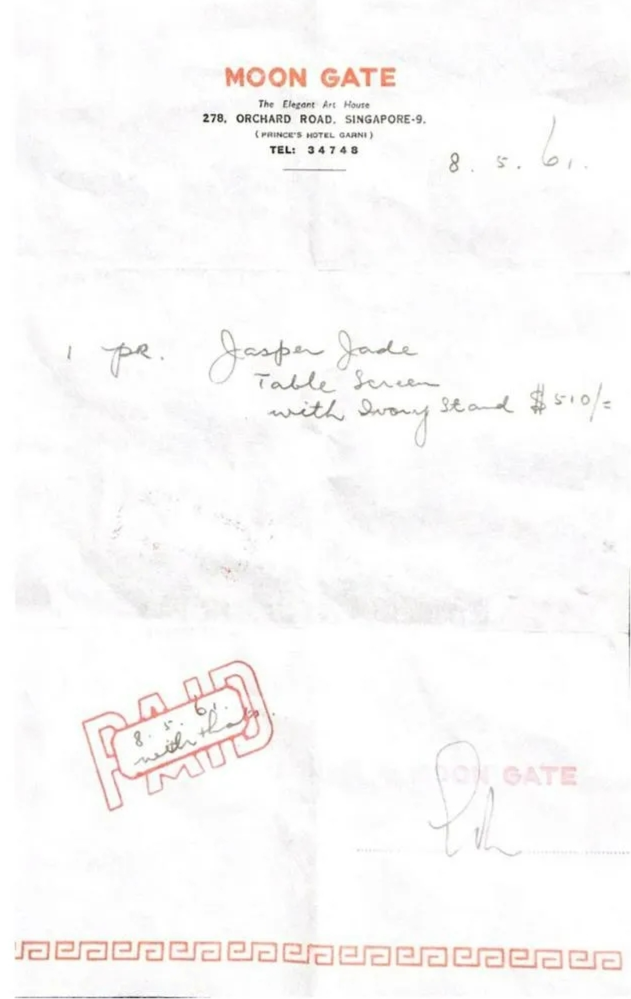 MOON GATE
The Elegant Art House
278, ORCHARD ROAD, SINGAPORE-9.
(PRINCE'S HOTEL GARNI)
TEL: 34748
8. 5. 61.
1 pr. Jasper Jade
Table Screen
with Ivory Stand $510/=
PAID
8. 5. 61.
with thanks.
MOON GATE